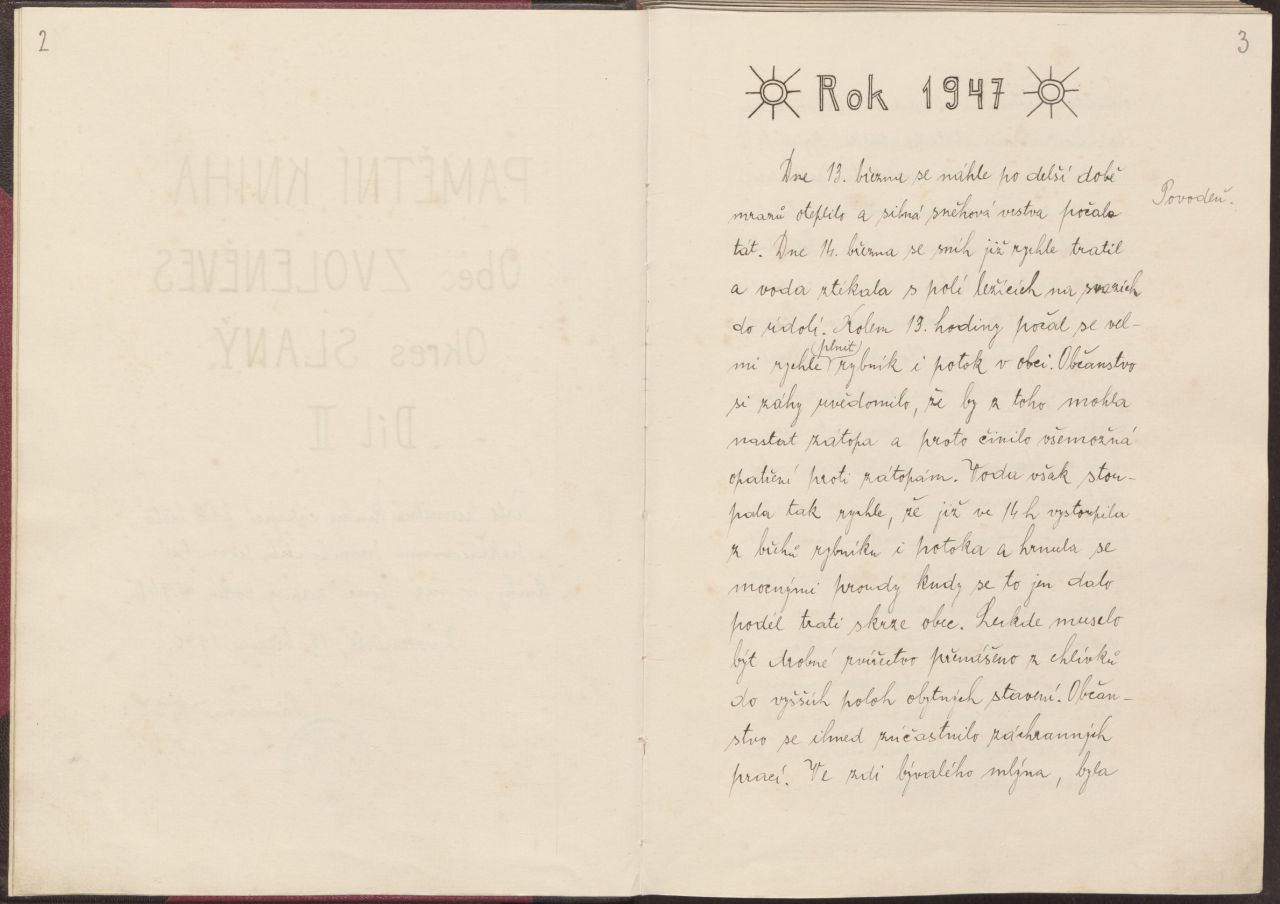 2
3
Rok 1947
Povodeň.
Dne 13. března se náhle po delší době
mrazů oteplilo a silná sněhová vrstva počala
tát. Dne 14. března se sníh již rychle tratil
a voda ztékala s polí ležících na svazích
do údolí. Kolem 13. hodiny počal se vel-
mi rychle (plnit) rybník i potok v obci. Občanstvo
si záhy uvědomilo, že by z toho mohla
nastat zátopa a proto činilo všemožná
opatření proti zátopám. Voda však stou-
pala tak rychle, že již ve 14 h vystoupila
z břehů rybníku i potoka a hrnula se
mocnými proudy kudy se to jen dalo
podél trati skrze obec. Leckde muselo
být drobné zvířectvo přenášeno z chlívků
do vyšších poloh obytných stavení. Občan-
stvo se ihned zúčastnilo záchranných
prací. Ve zdi bývalého mlýna, byla